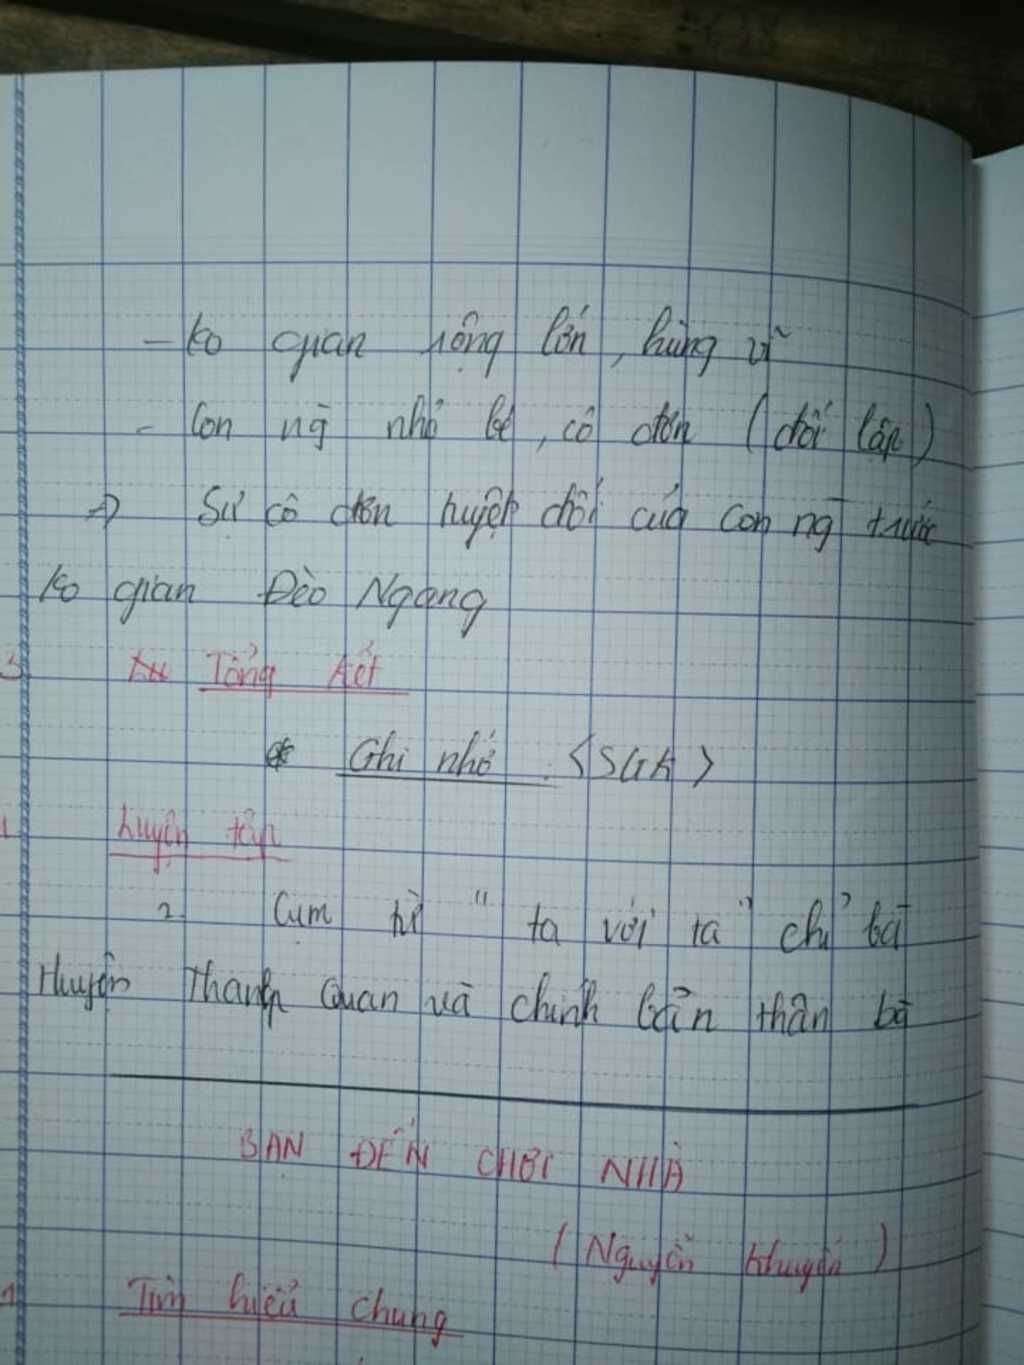 - Ko gian rộng lớn, hùng vĩ
- Con ng̃ nhỏ bé, cô đơn (đối lập)
=> Sự cô đơn tuyệt đối của con ng̃ trước
ko gian Đèo Ngang
3 Tổng kết
* Ghi nhớ : <SGK>
Luyện tập
2 Cụm từ "ta với ta" chỉ bà
Huyện Thanh Quan và chính bản thân bà
BẠN ĐẾN CHƠI NHÀ
(Nguyễn Khuyến)
1 Tìm hiểu chung